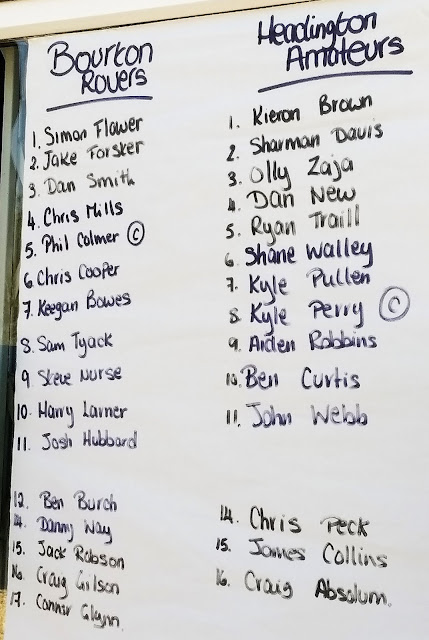 Bourton
Rovers
1. Simon Flower
2. Jake Forsker
3. Dan Smith
4. Chris Mills
5. Phil Colmer ©
6. Chris Cooper
7. Keegan Bowes
8. Sam Tyack
9. Steve Nurse
10. Harry Larner
11. Josh Hubbard
12. Ben Burch
14. Danny Way
15. Jack Robson
16. Craig Gilson
17. Connor Glynn
Headington
Amateurs
1. Kieron Brown
2. Sharman Davis
3. Olly Zaja
4. Dan New
5. Ryan Traill
6. Shane Walley
7. Kyle Pullen
8. Kyle Perry ©
9. Aiden Robbins
10. Ben Curtis
11. John Webb
14. Chris Peck
15. James Collins
16. Craig Absolum.